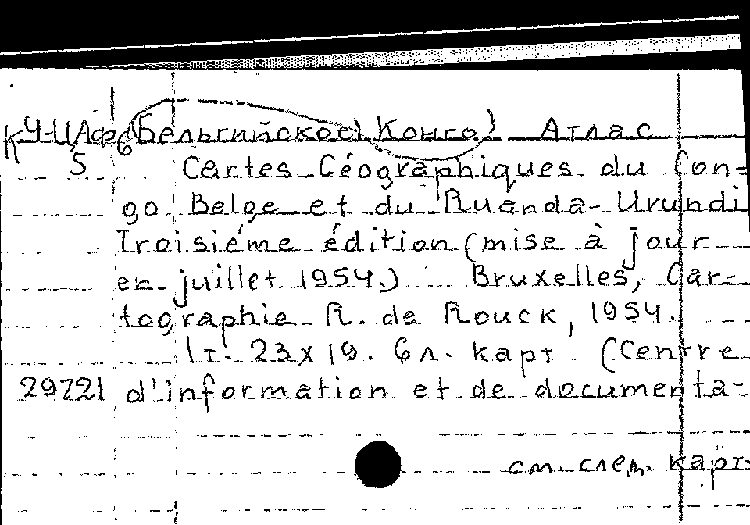 К Ч-ЦАф6 (Бельгийское) Конго) Атлас
5 Cartes Géographiques du Con=
go Belge et du Ruanda-Urundi
Troisiéme édition (mise à jour
en juillet 1954.) Bruxelles, Car-
tographie R. de Rouck, 1954.
1 т. 23х19. 6 л. карт (Centre
29721 d'information et de documenta-
см. след. карт